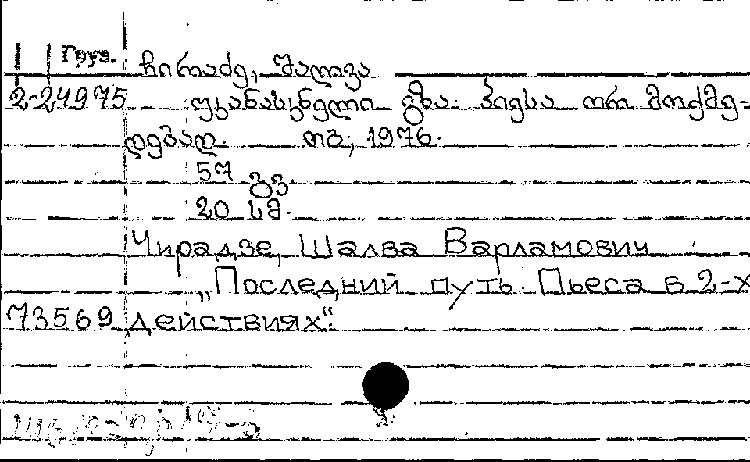 Груз. ჩირაძე, შალვა
2-24975 უკანასკნელი გზა. პიესა ორ მოქმე-
დებად. თბ, 1976.
57 გვ.
20 სმ.
Чирадзе, Шалва Варламович
„Последний путь. Пьеса в 2-х
73569 действиях".